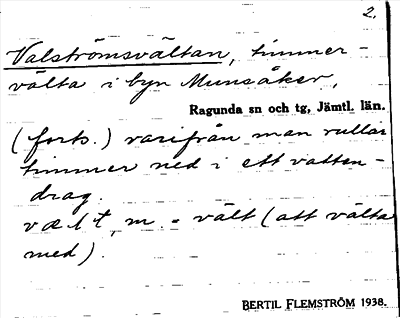 2.
Valströmsvältan, timmer-
välta i byn Munsåker,
Ragunda sn och tg, Jämtl. län.
(forts.) varifrån man rullar
timmer ned i ett vatten-
drag.
væl't, m. = vält (att välta
med).
BERTIL FLEMSTRÖM 1938.